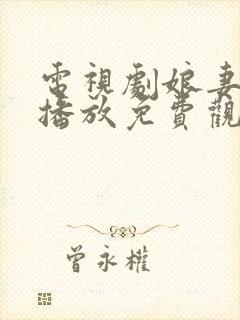 電視劇娘妻
播放免費觀
曾永權